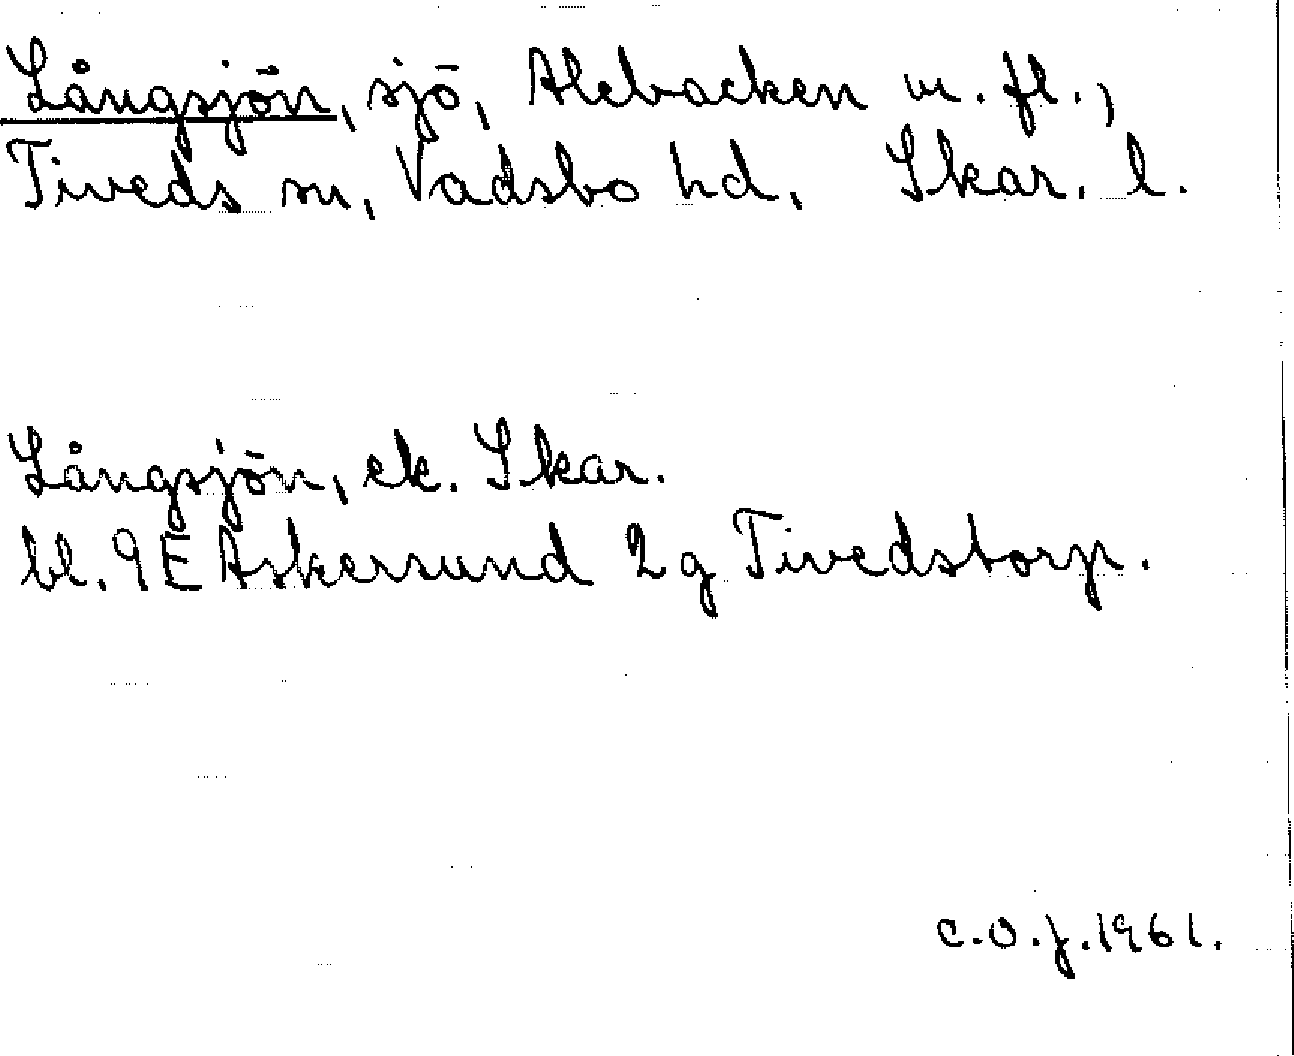 Långsjön, sjö, Alebacken m. fl.,
Tiveds sn, Vadsbo hd, Skar. l.
Långsjön, ek. Skar.
bl. 9E Askersund 2g Tivedstorp.
C.O.J. 1961.